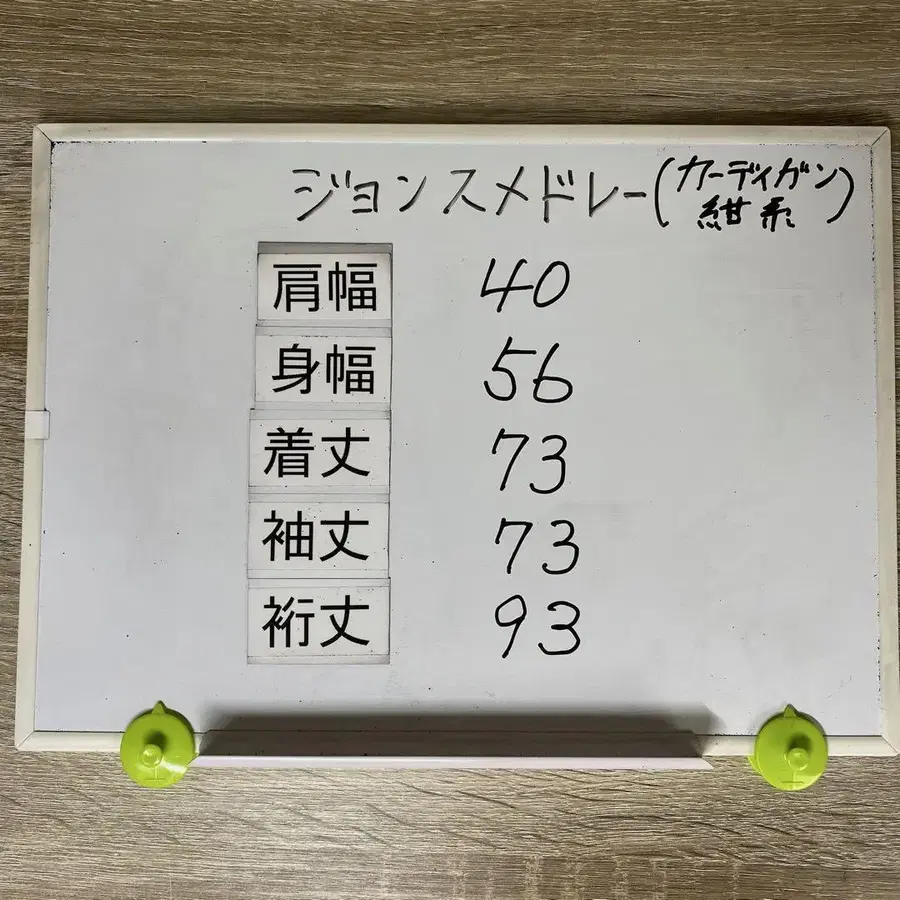 ジョンスメドレー(カーディガン 紺系)
肩幅 40
身幅 56
着丈 73
袖丈 73
裄丈 93